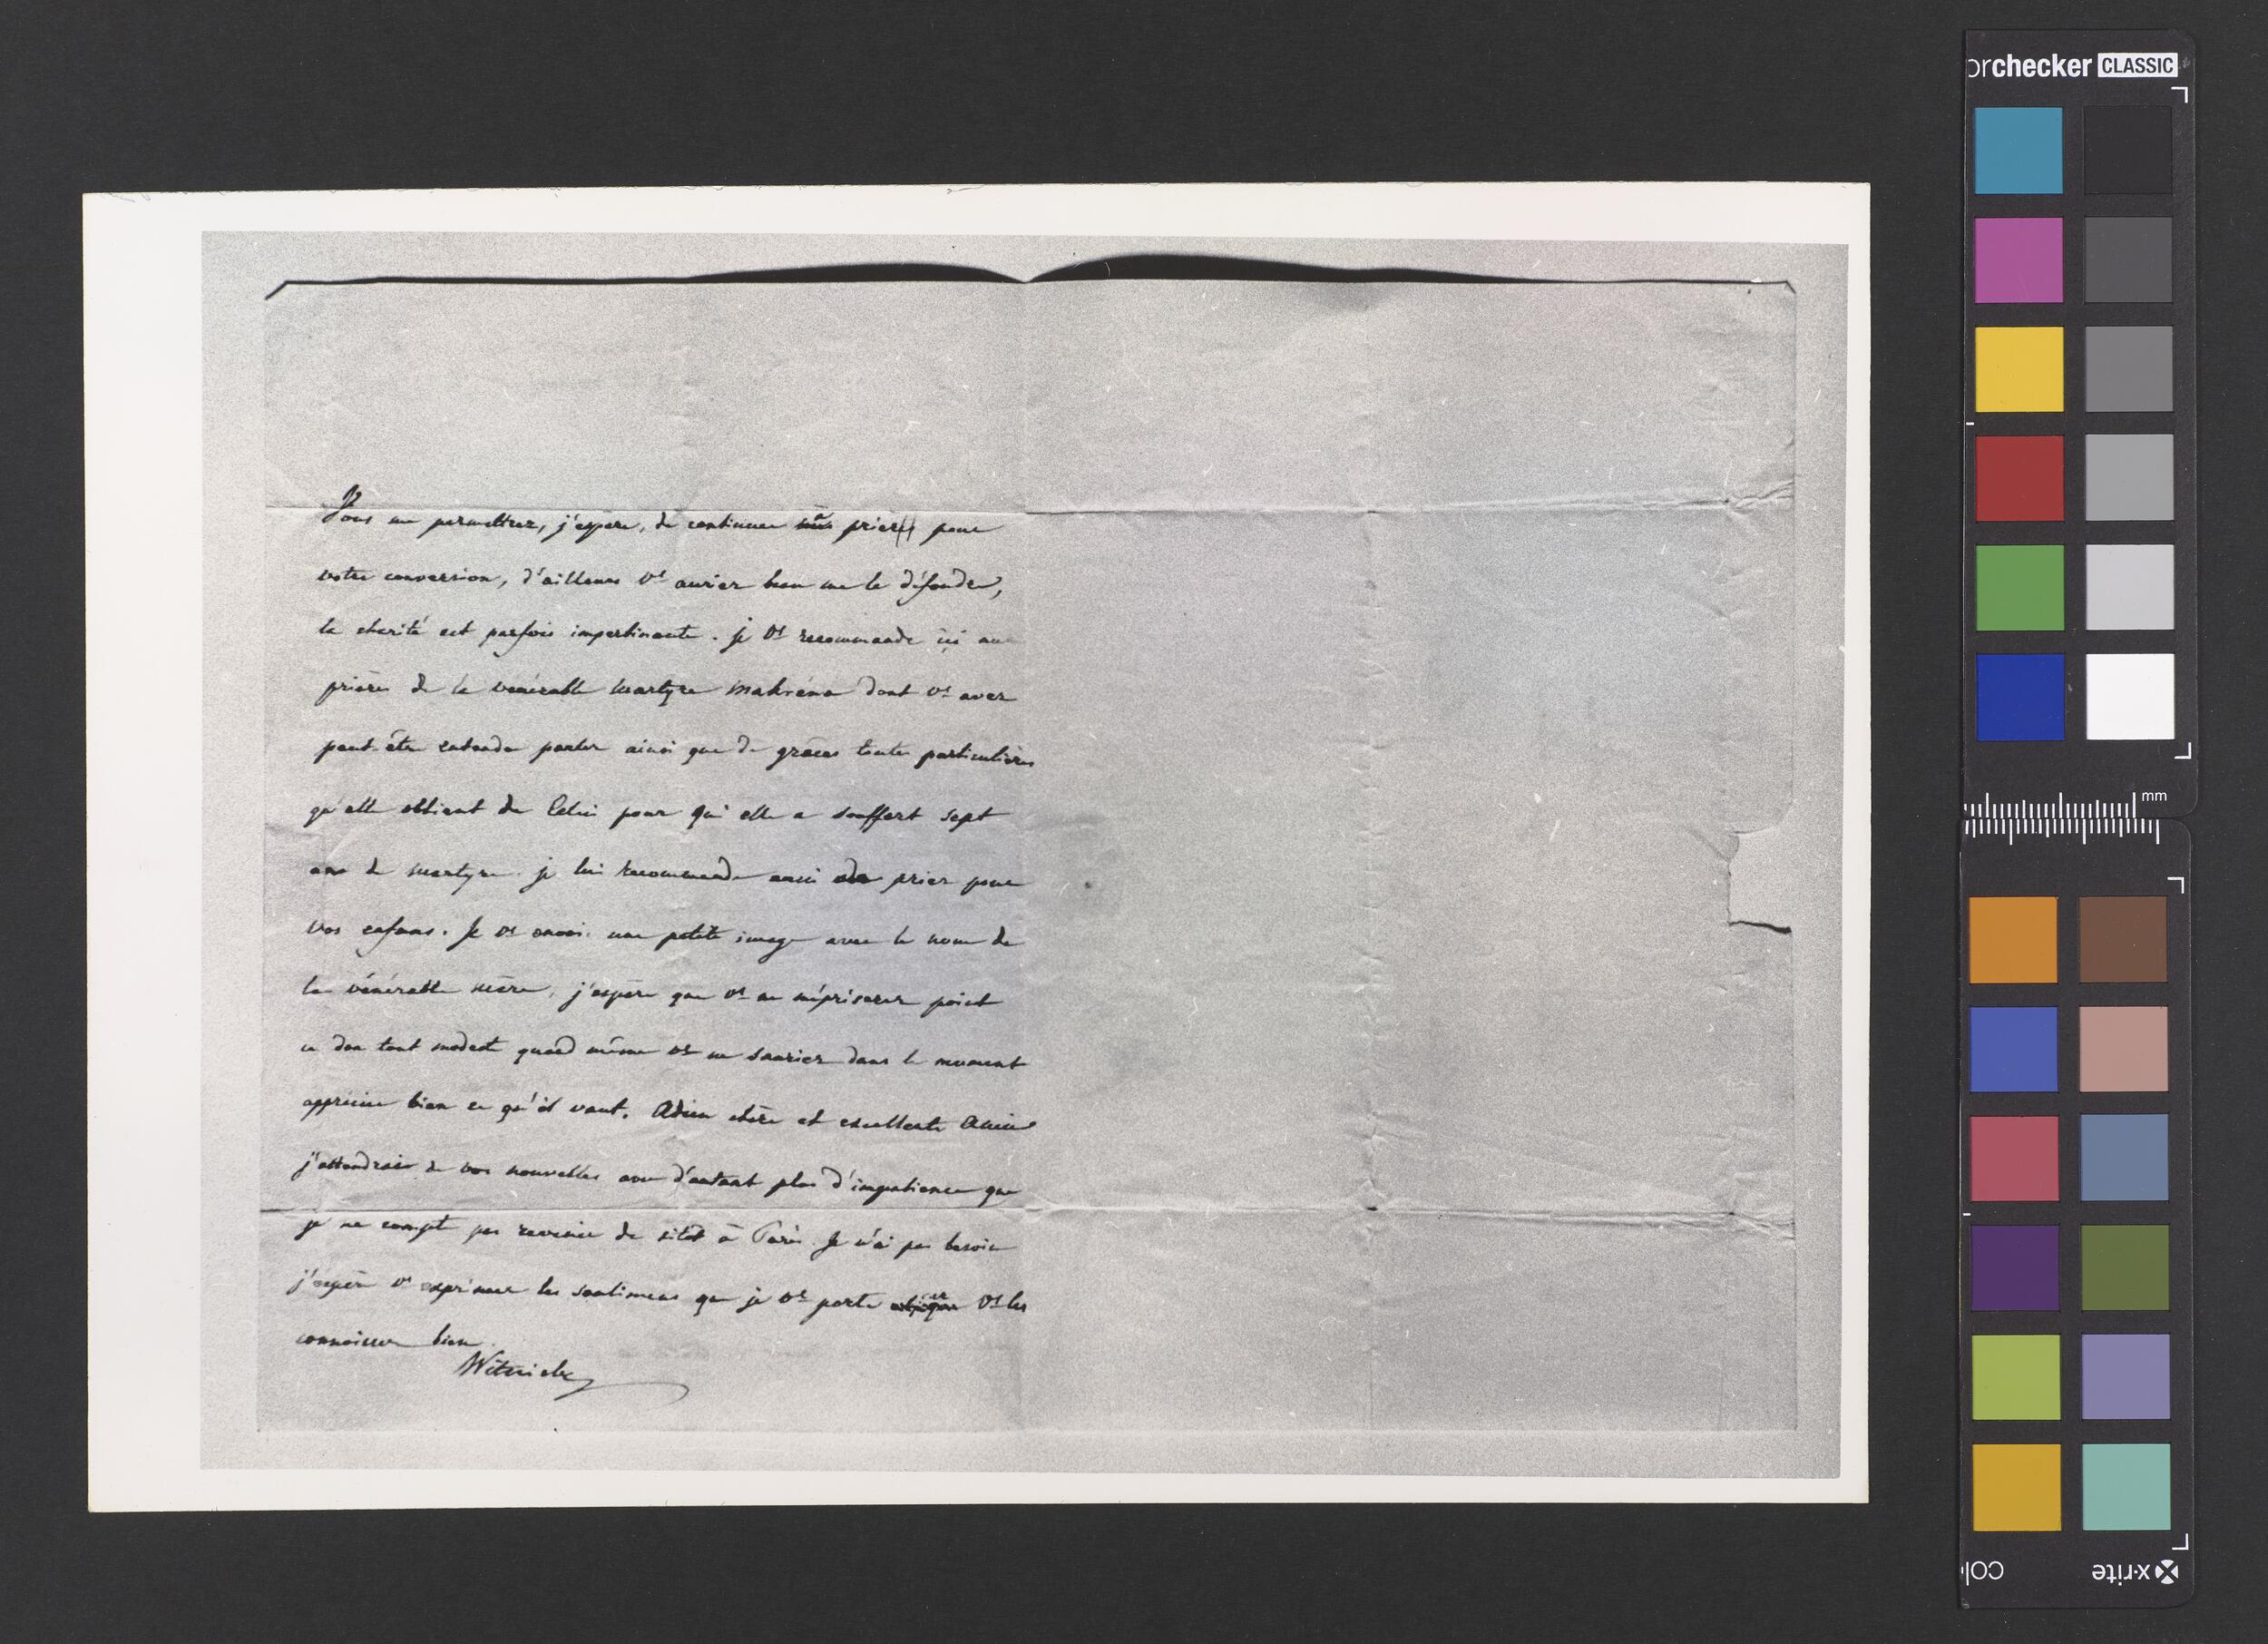 Vous me permettrez, j'espère, de continuer à prier pour
votre conversion, d'ailleurs vs auriez beau me le défendre,
la charité est parfois impertinente. je vs recommande ici aux
prières de la vénérable martyre Makrena dont vs avez
peut-être entendu parler ainsi que de grâces toutes particulières
qu'elle obtient de Celui pour qui elle a souffert sept
ans de martyre. je lui recommande aussi de prier pour
vos enfans. Je vs envoie une petite image avec le nom de
la vénérable mère, j'espère que vs ne mépriserez point
ce don tout modeste quand même vs ne sauriez dans le moment
apprécier bien ce qu'il vaut. Adieu chère et excellente Amie
j'attendrais de vos nouvelles avec d'autant plus d'impatience que
je ne compte pas revenir de sitôt à Paris. Je n'ai pas besoin
j'espère vs exprimer les sentimens que je vs porte vs les
connaissez bien.
Witwicki
orchecker CLASSIC
mm
x-rite
col